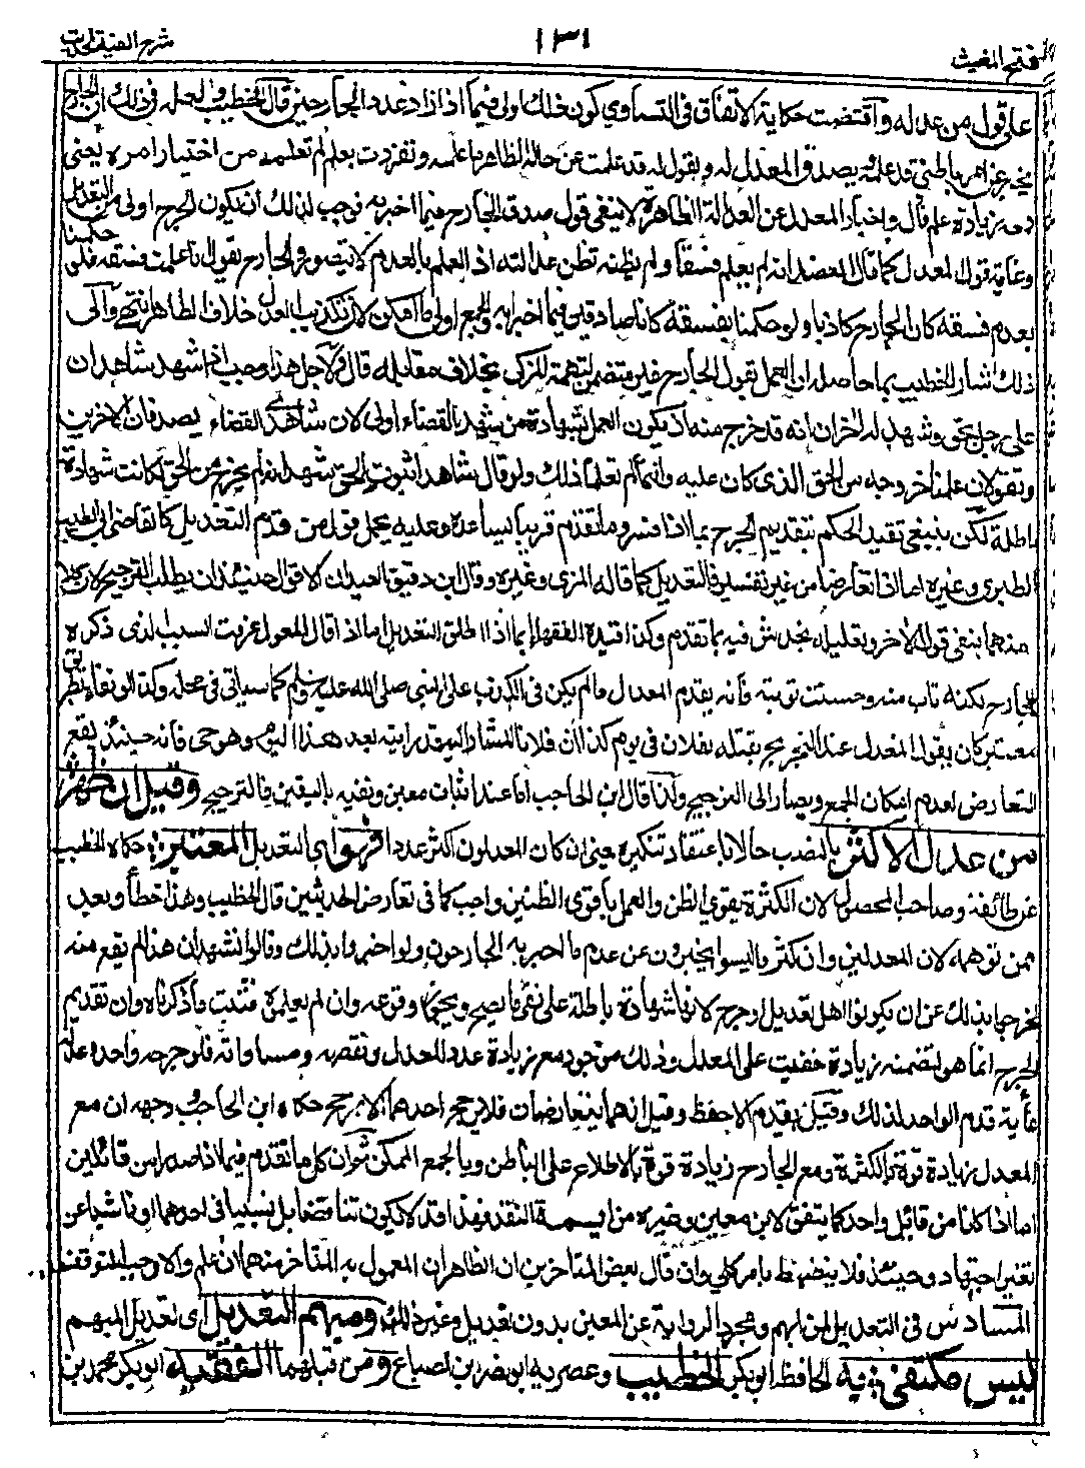 فتح المغيث
١٣١
شرح الفية الحديث
على قول من عدله واقتضت حكاية الاتفاق في التساوي كون ذلك اولى فيما اذا زاد عدد الجارحين قال الخطيب والعلة في ذلك ان الجارح
يخبر عن امر باطني قد علمه ويصدق المعدل له ويقول له قد علمت من حاله الظاهر ما علمته وتفردت بعلم لم تعلمه من اختيار امره يعني
فمعه زيادة علم قال واخبار المعدل عن العدالة الظاهرة لا ينفي قول صدق الجارح فيما اخبر به فوجب لذلك ان يكون الجرح اولى من التعديل
وغاية قول المعدل كما قال العضد انه لم يعلم فسقا ولم يظنه فظن عدالته اذ العلم بالعدم لا يتصور والجارح يقول انا علمت فسقه فلو حكمنا
بعدم فسقه كان الجارح كاذبا ولو حكمنا بفسقه كانا صادقين فيما اخبرا به والجمع اولى ما امكن لان تكذيب العدل خلاف الظاهر انتهى والى
ذلك اشار الخطيب بما حاصله ان العمل بقول الجارح غير متضمن لتهمة المزكي بخلاف مقابله قال ولاجل هذا وجب اذا شهد شاهدان
على رجل بحق وشهد له اخران انه قد خرج منه ان يكون العمل بشهادة من شهد بالقضاء اولى لان شاهدي القضاء يصدقان الاخرين
ويقولان علمنا خروجه من الحق الذي كان عليه وانتما لم تعلما ذلك ولو قال شاهدا ثبوت الحق نشهد انه لم يخرج من الحق لكانت شهادة
باطلة لكن ينبغي تقييد الحكم بتقديم الجرح بما اذا فسر وما تقدم قريبا يساعده وعليه يحمل قول من قدم التعديل كالقاضي ابي الطيب
الطبري وغيره اما اذا تعارضا من غير تفسير فالتعديل كما قاله المزي وغيره وقال ابن دقيق العيد ان الاقوى حينئذ ان يطلب الترجيح لان كلا
منهما ينفي قول الاخر وتعليله يخدش فيه بما تقدم وكذا قيده الفقهاء بما اذا اطلق التعديل اما اذا قال المعدل عرفت السبب الذي ذكره
الجارح لكنه تاب منه وحسنت توبته فانه يقدم المعدل ما لم يكن في الكذب على النبي صلى الله عليه وسلم كما سياتي في محله وكذا لو نفاه بطريق
معتبر كان يقول المعدل عند التجريح بقتله لفلان في يوم كذا ان فلانا المشار اليه قد رايته بعد هذا اليوم وهو حي فانه حينئذ يقع
التعارض لعدم امكان الجمع ويصار الى الترجيح ولذا قال ابن الحاجب اما عند اثبات معين ونفيه باليقين فالترجيح وقيل ان ظهر
من عدل الاكثر بالنصب حالا باعتقاد تنكيره يعني ان كان المعدلون اكثر عددا فهو اي التعديل المعتبر حكاه الخطيب
عن طائفة وصاحب المحصول لان الكثرة تقوي الظن والعمل باقوى الظنين واجب كما في تعارض الحديثين قال الخطيب وهذا خطأ وبعد
ممن توهمه لان المعدلين وان كثروا ليسوا يخبرون عن عدم ما اخبر به الجارحون ولو اخبروا بذلك وقالوا نشهد ان هذا لم يقع منه
لخرجوا بذلك عن ان يكونوا اهل تعديل او جرح لانها شهادة باطلة على نفي ما يصح ويجوز وقوعه وان لم يعلموه فثبت ما ذكرناه وان تقديم
الجرح انما هو لتضمنه زيادة خفيت على المعدل وذلك موجود مع زيادة عدد المعدل ونقصه ومساواته فلو جرحه واحد وعدله
مائة قدم الواحد لذلك وقيل يقدم الاحفظ وقيل انهما يتعارضان فلا يرجح احدهما الا بمرجح حكاه ابن الحاجب ووجهه ان مع
المعدل زيادة قوة بالكثرة ومع الجارح زيادة قوة بالاطلاع على الباطن وبالجمع الممكن ثم ان كل ما تقدم فيما اذا صدرا من قائلين
اما اذا كانا من قائل واحد كما يتفق لابن معين وغيره من ائمة النقد فهذا قد لا يكون تناقضا بل نسبيا في احدهما او ناشيا عن
تغير اجتهاد وحينئذ فلا ينضبط بامر كلي وان قال بعض المتاخرين ان الظاهر ان المعمول به المتاخر منهما ان علم والا وجب التوقف
السادس في التعديل لمن ابهم ومجرد الرواية عن المعين بدون تعديل وغير ذلك ومبهم التعديل اي تعديل المبهم
ليس مكتفي به الحافظ ابو بكر الخطيب وعصريه ابو نصر ابن الصباغ ومن قبلهما الفقيه ابو بكر محمد بن